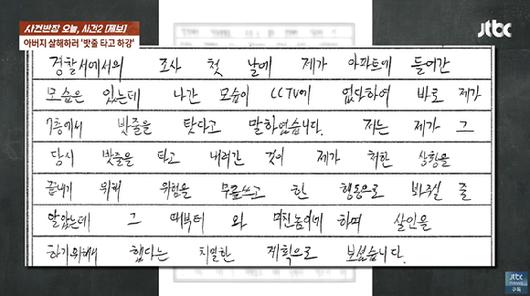 사건반장 오늘, 사건2 [제보]
아버지 살해하러 '밧줄 타고 하강'
jtbc
경찰서에서의 조사 첫 날에 제가 아파트에 들어간
모습은 있는데 나간 모습이 CCTV에 없다하여 바로 제가
7층에서 밧줄을 탔다고 말하였습니다. 저는 제가 그
당시 밧줄을 타고 내려간 것이 제가 처한 상황을
끝내기 위해 위험을 무릅쓰고 한 행동으로 봐주실 줄
알았는데 그 때부터 와 미친놈이네 하며 살인을
하기위해서 했다는 치열한 계획으로 보셨습니다.
jtbc
구독